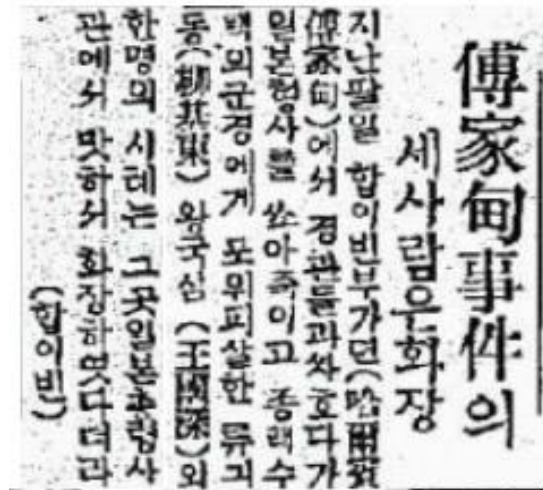 傅家甸事件의
세사람은화장
지난팔일 합이빈부가뎐(哈爾賓
傅家甸)에서 경관들과싸호다가
일본형사를 쏘아죽이고 종래수
백의군경에게 포위피살한 류긔
동(柳基東) 왕국심 (王國深)외
한명의 시테는 그곳일본총령사
관에서 맛하서 화장하엿다더라
(합이빈)